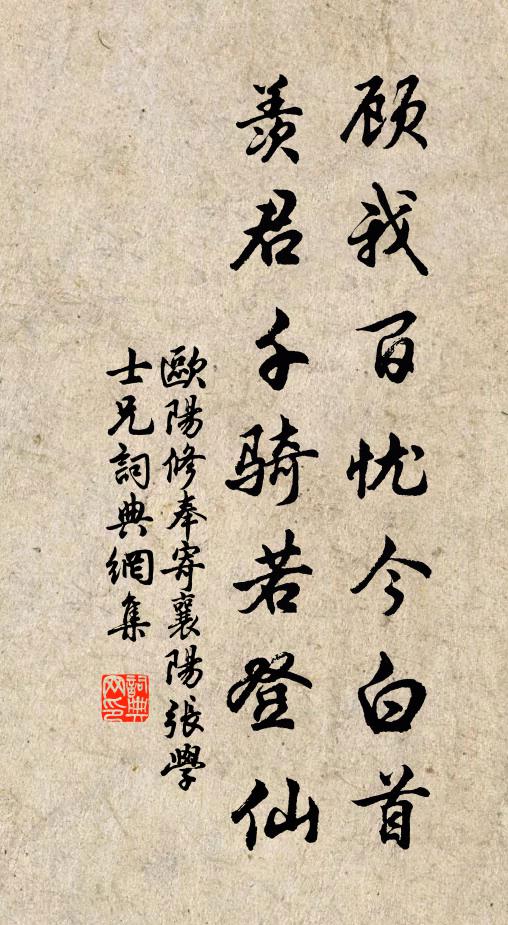 顾我百忧今白首
羡君千骑若登仙
歐陽修奉寄襄陽張學
士兄詞典網集
詞典
网印